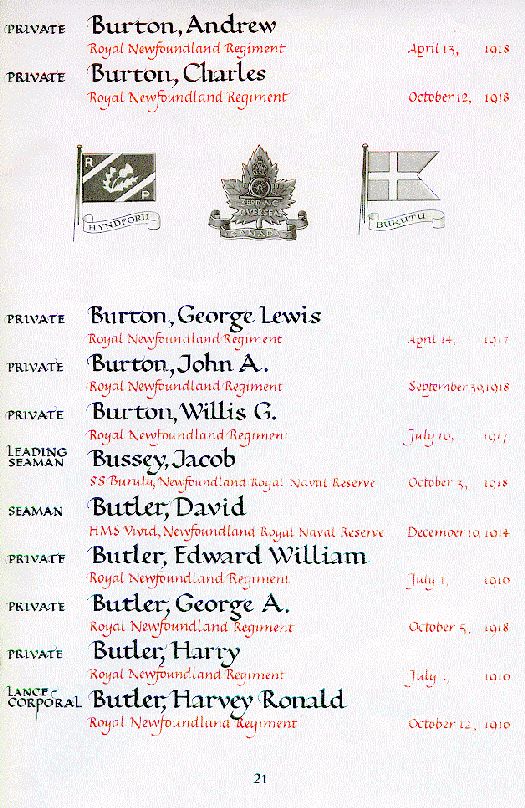 PRIVATE Burton, Andrew
Royal Newfoundland Regiment April 13, 1918
PRIVATE Burton, Charles
Royal Newfoundland Regiment October 12, 1918
R
P
HYNDFORD
BURUTU
PRIVATE Burton, George Lewis
Royal Newfoundland Regiment April 14, 1917
PRIVATE Burton, John A.
Royal Newfoundland Regiment September 30, 1918
PRIVATE Burton, Willis G.
Royal Newfoundland Regiment July 10, 1917
LEADING
SEAMAN Bussey, Jacob
SS Burutu, Newfoundland Royal Naval Reserve October 3, 1918
SEAMAN Butler, David
HMS Vivid, Newfoundland Royal Naval Reserve December 10, 1914
PRIVATE Butler, Edward William
Royal Newfoundland Regiment July 1, 1916
PRIVATE Butler, George A.
Royal Newfoundland Regiment October 5, 1918
PRIVATE Butler, Harry
Royal Newfoundland Regiment July 1, 1916
LANCE
CORPORAL Butler, Harvey Ronald
Royal Newfoundland Regiment October 12, 1916
21